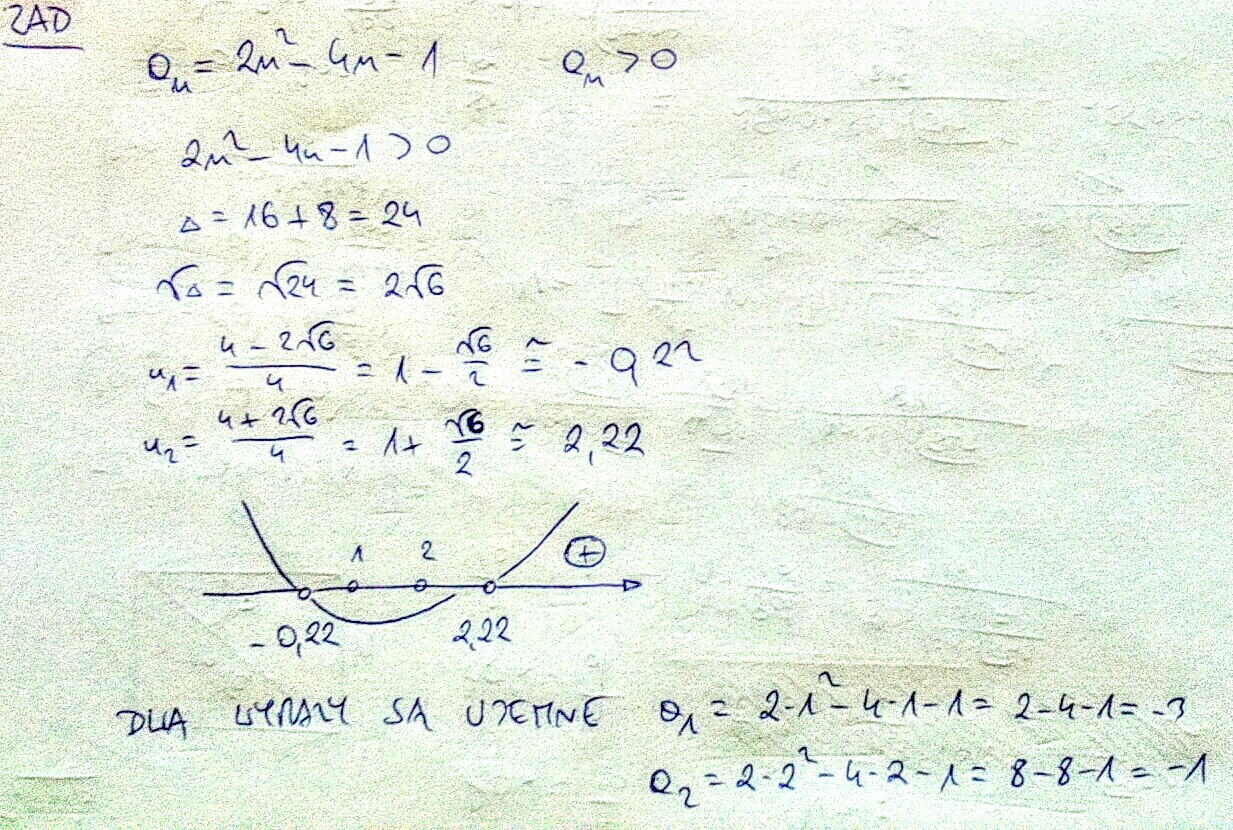 ZAD
aₙ = 2n² - 4n - 1 aₙ > 0
2n² - 4n - 1 > 0
Δ = 16 + 8 = 24
√Δ = √24 = 2√6
n₁ = (4 - 2√6)/4 = 1 - √6/2 ≅ - 0,22
n₂ = (4 + 2√6)/4 = 1 + √6/2 ≅ 2,22
1 2 +
- 0,22 2,22
DWA WYRAZY SA UJEMNE a₁ = 2·1² - 4·1 - 1 = 2 - 4 - 1 = -3
a₂ = 2·2² - 4·2 - 1 = 8 - 8 - 1 = -1